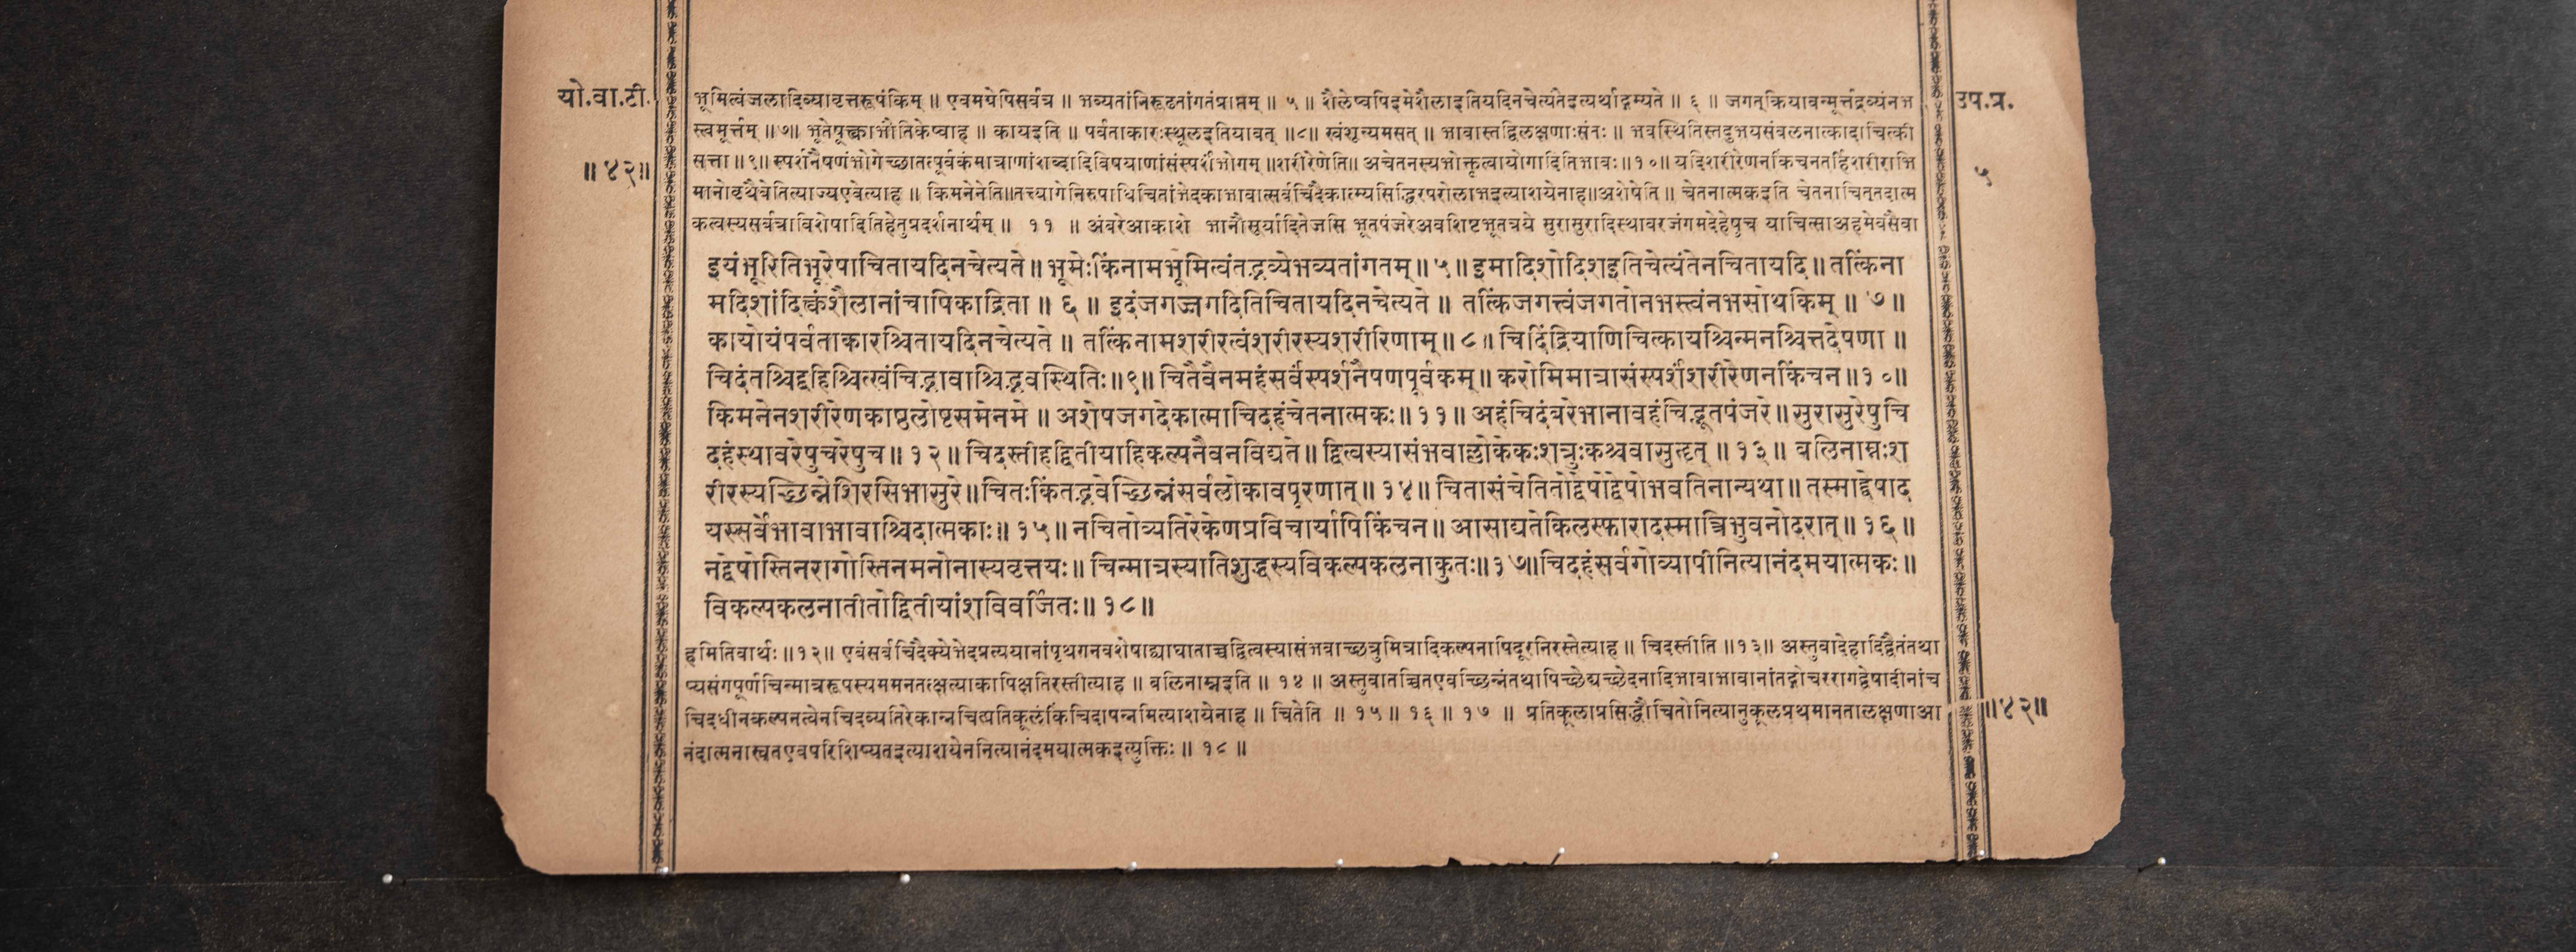 यो.वा.टी.
॥४२॥
भूमित्वंजलादिव्यावृत्तरूपंकिम् ॥ एवमग्रेपिसर्वत्र ॥ भव्यतांनिरूढतांगतंप्राप्तम् ॥ ५ ॥ शैलेष्वपिइमेशैलाइतियदिनचेत्यंतेइत्यर्थाद्गम्यते ॥ ६ ॥ जगत्क्रियावन्मूर्त्तद्रव्यंनभ
स्त्वमूर्त्तम् ॥७॥ भूतेषूक्त्वाभौतिकेष्वाह ॥ कायइति ॥ पर्वताकारःस्थूलइतियावत् ॥८॥ खंशून्यमसत् ॥ भावास्तद्विलक्षणाःसंतः ॥ भवस्थितिस्तदुभयसंवलनात्कादाचित्की
सत्ता ॥९॥ स्पर्शनैषणंभोगेच्छातत्पूर्वकंमात्राणांशब्दादिविषयाणांसंस्पर्शंभोगम् ॥शरीरेणेति॥ अचेतनस्यभोक्तृत्वायोगादितिभावः॥१०॥ यदिशरीरेणनकिंचनतर्हिशरीराभि
मानोवृथैवेतित्याज्यएवेत्याह ॥ किमनेनेति॥तत्त्यागेनिरुपाधिचितांभेदकाभावात्सर्वचिदैकात्म्यसिद्धिरपरोलाभइत्याशयेनाह॥अशेषेति ॥ चेतनात्मकइति चेतनाचित्तदात्म
कत्वस्यसर्वत्राविशेषादितिहेतुप्रदर्शनार्थम् ॥ ११ ॥ अंबरेआकाशे भानौसूर्यादितेजसि भूतपंजरेअवशिष्टभूतत्रये सुरासुरादिस्थावरजंगमदेहेषुच याचित्साअहमेवसैवा
इयंभूरितिभूरेषाचितायदिनचेत्यते॥भूमेःकिंनामभूमित्वंतद्भव्येभव्यतांगतम्॥५॥इमादिशोदिशइतिचेत्यंतेनचितायदि॥तत्किंना
मदिशांदिक्त्वंशैलानांचापिकाद्रिता॥ ६ ॥ इदंजगज्जगदितिचितायदिनचेत्यते॥ तत्किंजगत्त्वंजगतोनभस्त्वंनभसोथकिम्॥ ७॥
कायोयंपर्वताकारश्चितायदिनचेत्यते॥ तत्किंनामशरीरत्वंशरीरस्यशरीरिणाम्॥८॥चिदिंद्रियाणिचित्कायश्चिन्मनश्चित्तदेषणा ॥
चिदंतश्चिद्बहिश्चित्खंचिद्भावाश्चिद्भवस्थितिः॥९॥चितैवैनमहंसर्वस्पर्शनैषणपूर्वकम्॥करोमिमात्रासंस्पर्शंशरीरेणनकिंचन॥१०॥
किमनेनशरीरेणकाष्ठलोष्टसमेनमे॥ अशेषजगदेकात्माचिदहंचेतनात्मकः॥११॥अहंचिदंबरेभानावहंचिद्भूतपंजरे॥सुरासुरेषुचि
दहंस्थावरेषुचरेषुच॥१२॥चिदस्तीहद्वितीयाहिकल्पनैवनविद्यते॥द्वित्वस्यासंभवाल्लोकेकःशत्रुःकश्चवासुहृत् ॥ १३॥ बलिनाम्नःश
रीरस्यच्छिन्नेशिरसिभासुरे॥चितःकिंतद्भवेच्छिन्नंसर्वलोकावपूरणात्॥१४॥चितासंचेतितोद्वेषोद्वेषोभवतिनान्यथा॥तस्माद्द्वेषाद
यस्सर्वेभावाभावाश्चिदात्मकाः॥१५॥नचितोव्यतिरेकेणप्रविचार्यापिकिंचन॥आसाद्यतेकिलस्फारादस्मात्त्रिभुवनोदरात्॥१६॥
नद्वेषोस्तिनरागोस्तिनमनोनास्यवृत्तयः॥चिन्मात्रस्यातिशुद्धस्यविकल्पकलनाकुतः॥१७॥चिदहंसर्वगोव्यापीनित्यानंदमयात्मकः॥
विकल्पकलनातीतोद्वितीयांशविवर्जितः॥१८॥
हमितिवार्थः॥१२॥ एवंसर्वचिदैक्येभेदप्रत्ययानांपृथगनवशेषाद्व्याघाताच्चद्वित्वस्यासंभवाच्छत्रुमित्रादिकल्पनापिदूरनिरस्तेत्याह॥ चिदस्तीति ॥१३॥ अस्तुवादेहादिद्वैतंतथा
प्यसंगपूर्णचिन्मात्ररूपस्यममनतत्क्षत्याकापिक्षतिरस्तीत्याह ॥ बलिनाम्नइति ॥ १४ ॥ अस्तुवातच्चितएवच्छिन्नंतथापिच्छेद्यच्छेदनादिभावाभावानांतद्गोचररागद्वेषादीनांच
चिदधीनकल्पनत्वेनचिदव्यतिरेकान्नचित्प्रतिकूलंकिंचिदापन्नमित्याशयेनाह ॥ चितेति ॥ १५॥ १६॥ १७ ॥ प्रतिकूलाप्रसिद्धौचितोनित्यानुकूलप्रथमानतालक्षणाआ
नंदात्मनास्वतएवपरिशिष्यतइत्याशयेननित्यानंदमयात्मकइत्युक्तिः॥ १८ ॥
उप.प्र.
५
॥४२॥